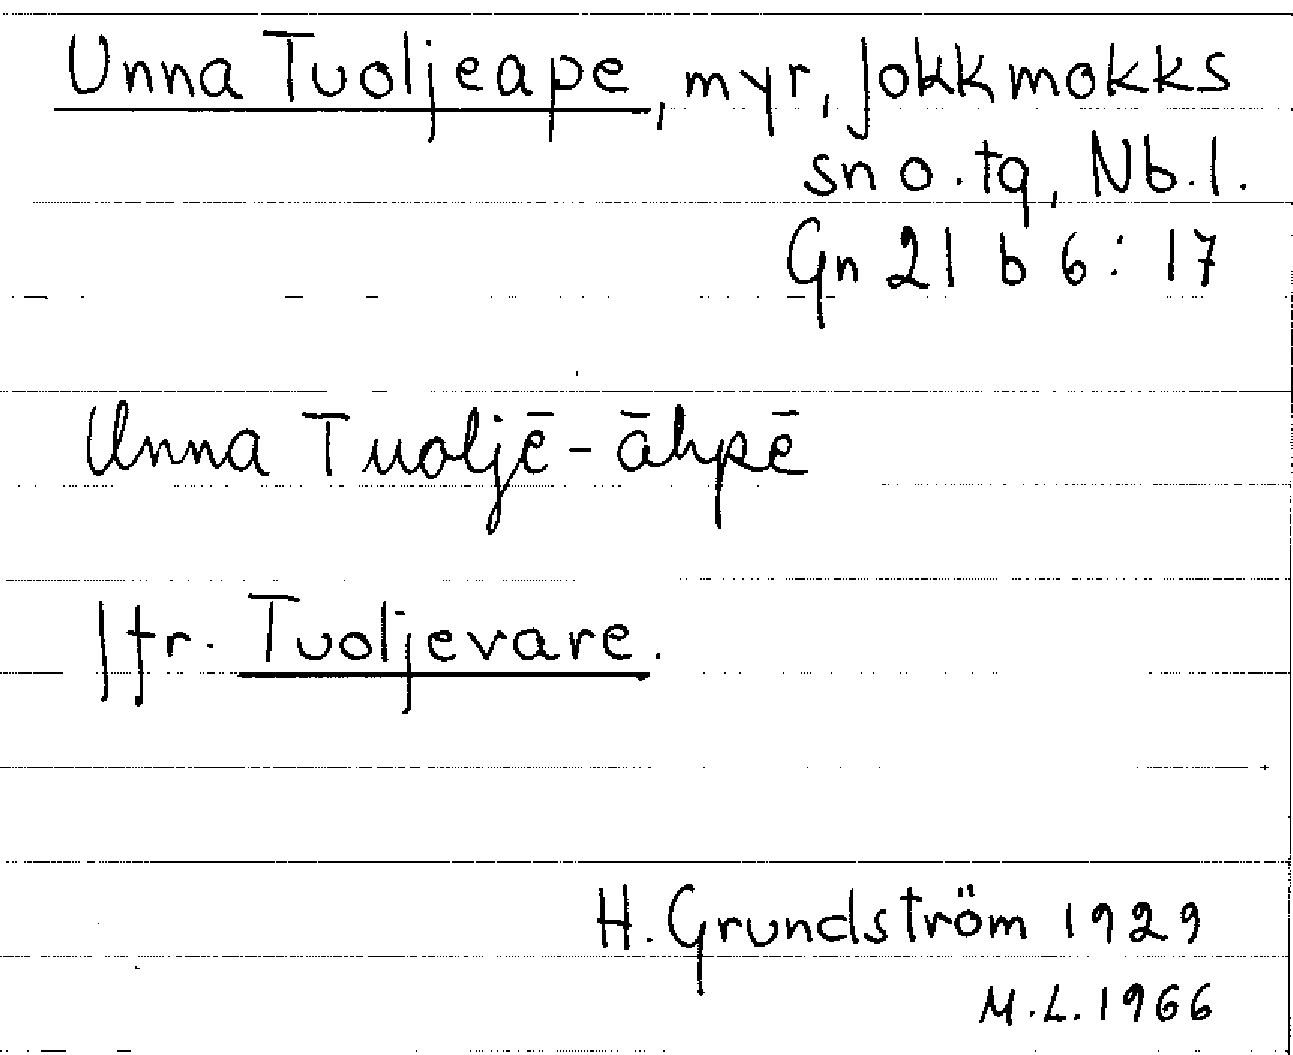 Unna Tuoljeape, myr, Jokkmokks
sn o. tg, Nb. l.
Gn 21 b 6: 17
Unna Tuoljē-āhpē
Jfr. Tuoljevare.
H. Grundström 1929
M.L. 1966